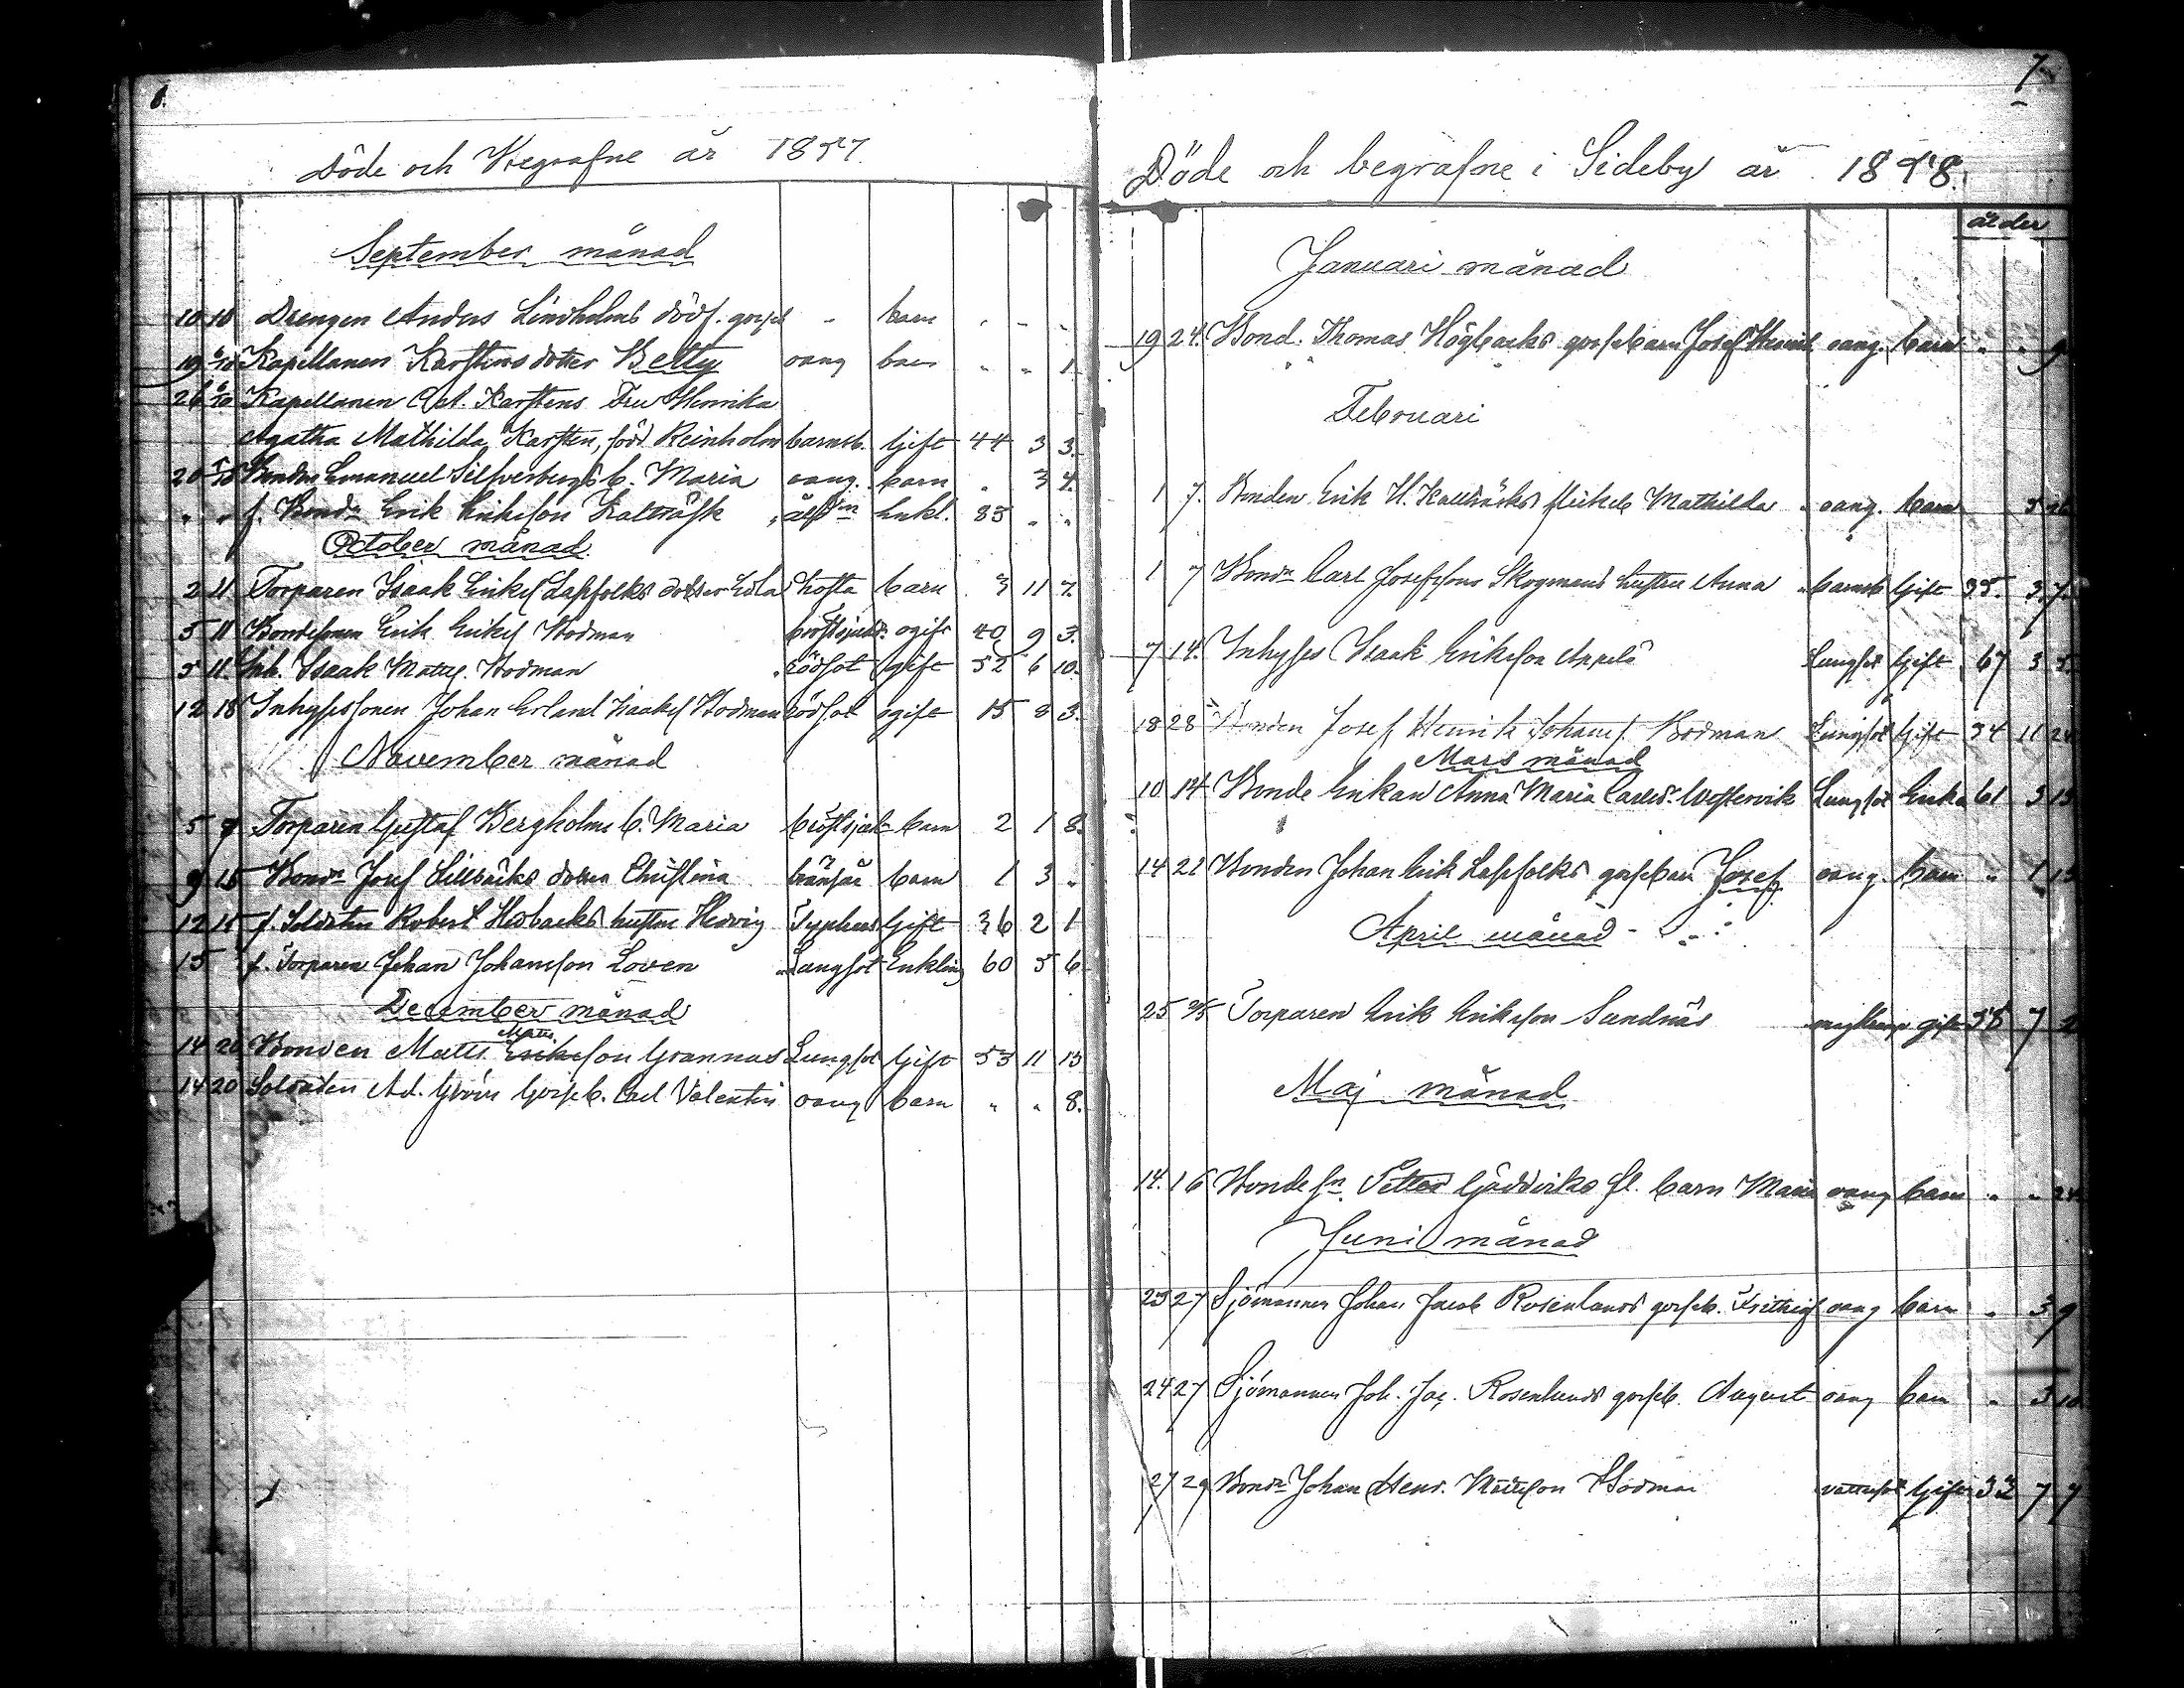 6.
Döde och Begrafne år 1877
September månad
10 16 Drengen Anders Lindholms dödf. gosseb - barn " - -
19 6/10 Kapellanen Karstens dotter Betty oang barn " " 1
26 6/10 Kapellanen Ad. Karstens Fru Henrika
Agatha Mathilda Karsten, född Reinholm barnsb. Gift 44 3 3.
20 Bonden Emanuel Silfverbergs b. Maria oang. barn " 3 4.
" " f. Bondn Erik Erikson Kallträsk åld Enkl. 85 " "
October månad
2 11 Torparen Isaak Eriks Lappfolks dotter Edla hosta barn 3 11 7.
5 11 Bondesonen Erik Eriks Hodman bröstsjukd. ogift 40 9 3.
5 11. Inh. Isaak Matts. Hodman rödsot gift 52 6 10.
12 18 Inhysessonen Johan Erland Isaaks Hodman rödsot ogift 15 8 3.
November månad
5 9 Torparen Gustaf Bergholms b. Maria bröstsjuk barn 2 1 8.
9 15 Bondn Josef Lillträsks dotter Christina barn 1 3 "
12 15 f. Soldaten Robert Hedbacks hustru Hedvig Typhus Gift 36 2 1
15 f. Torparen Johan Johansson Loven Lungsot Enkling 60 5 6
December månad
Matts.
14 20 Bonden Matts Erikson Grannas Lungsot Gift 53 11 13
14 20 Soldaten Ad. Gröns Gosseb. Carl Valentin oang barn " " 8.
7.
Döde och begrafne i Sideby år 1878.
ålder
Januari månad
19 24. Bond. Thomas Högbacks gossebarn Josef Henrik oang. barn " " 9
Februari
1 7. Bonden Erik H. Kallträsks flickeb Mathilda oang. barn 5 26
1 7 Bondn Carl Josefssons Skogmans hustru Anna barnsb Gift 35. 3 7
7 14. Inhyses Isaak Erikson Appelö Lungsot Gift 67 3 5
18 28 Bonden Josef Henrik Johans. Bodman Lungsot Gift 34 11 24
Mars månad
10 14 Bonde Enkan Anna Maria Carlsd. Westervik Lungsot Enka 61 3 13
14 21 Bonden Johan Erik Lappfolks gossebarn Josef oang. barn " 1 13
April månad
25 Torparen Erik Erikson Sandnäs magkramp gift 58 7 2
Maj månad
14. 16 Bonde sn. Petter Gäddviks fl. barn Maria oang barn " " 24
Juni månad
25 27 Sjömannen Johan Jacob Rosenlunds gosseb. Frithiof oang barn " 3 9
24 27 Sjömannen Joh. Jac. Rosenlunds gosseb. August oang barn " 3 10
27 29 Bondn Johan Henr. Mattson Hodman vattusot Gift 32 7 7